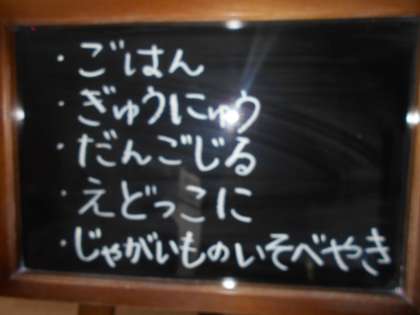 ・ごはん
・ぎゅうにゅう
・だんごじる
・えどっこに
・じゃがいものいそべやき